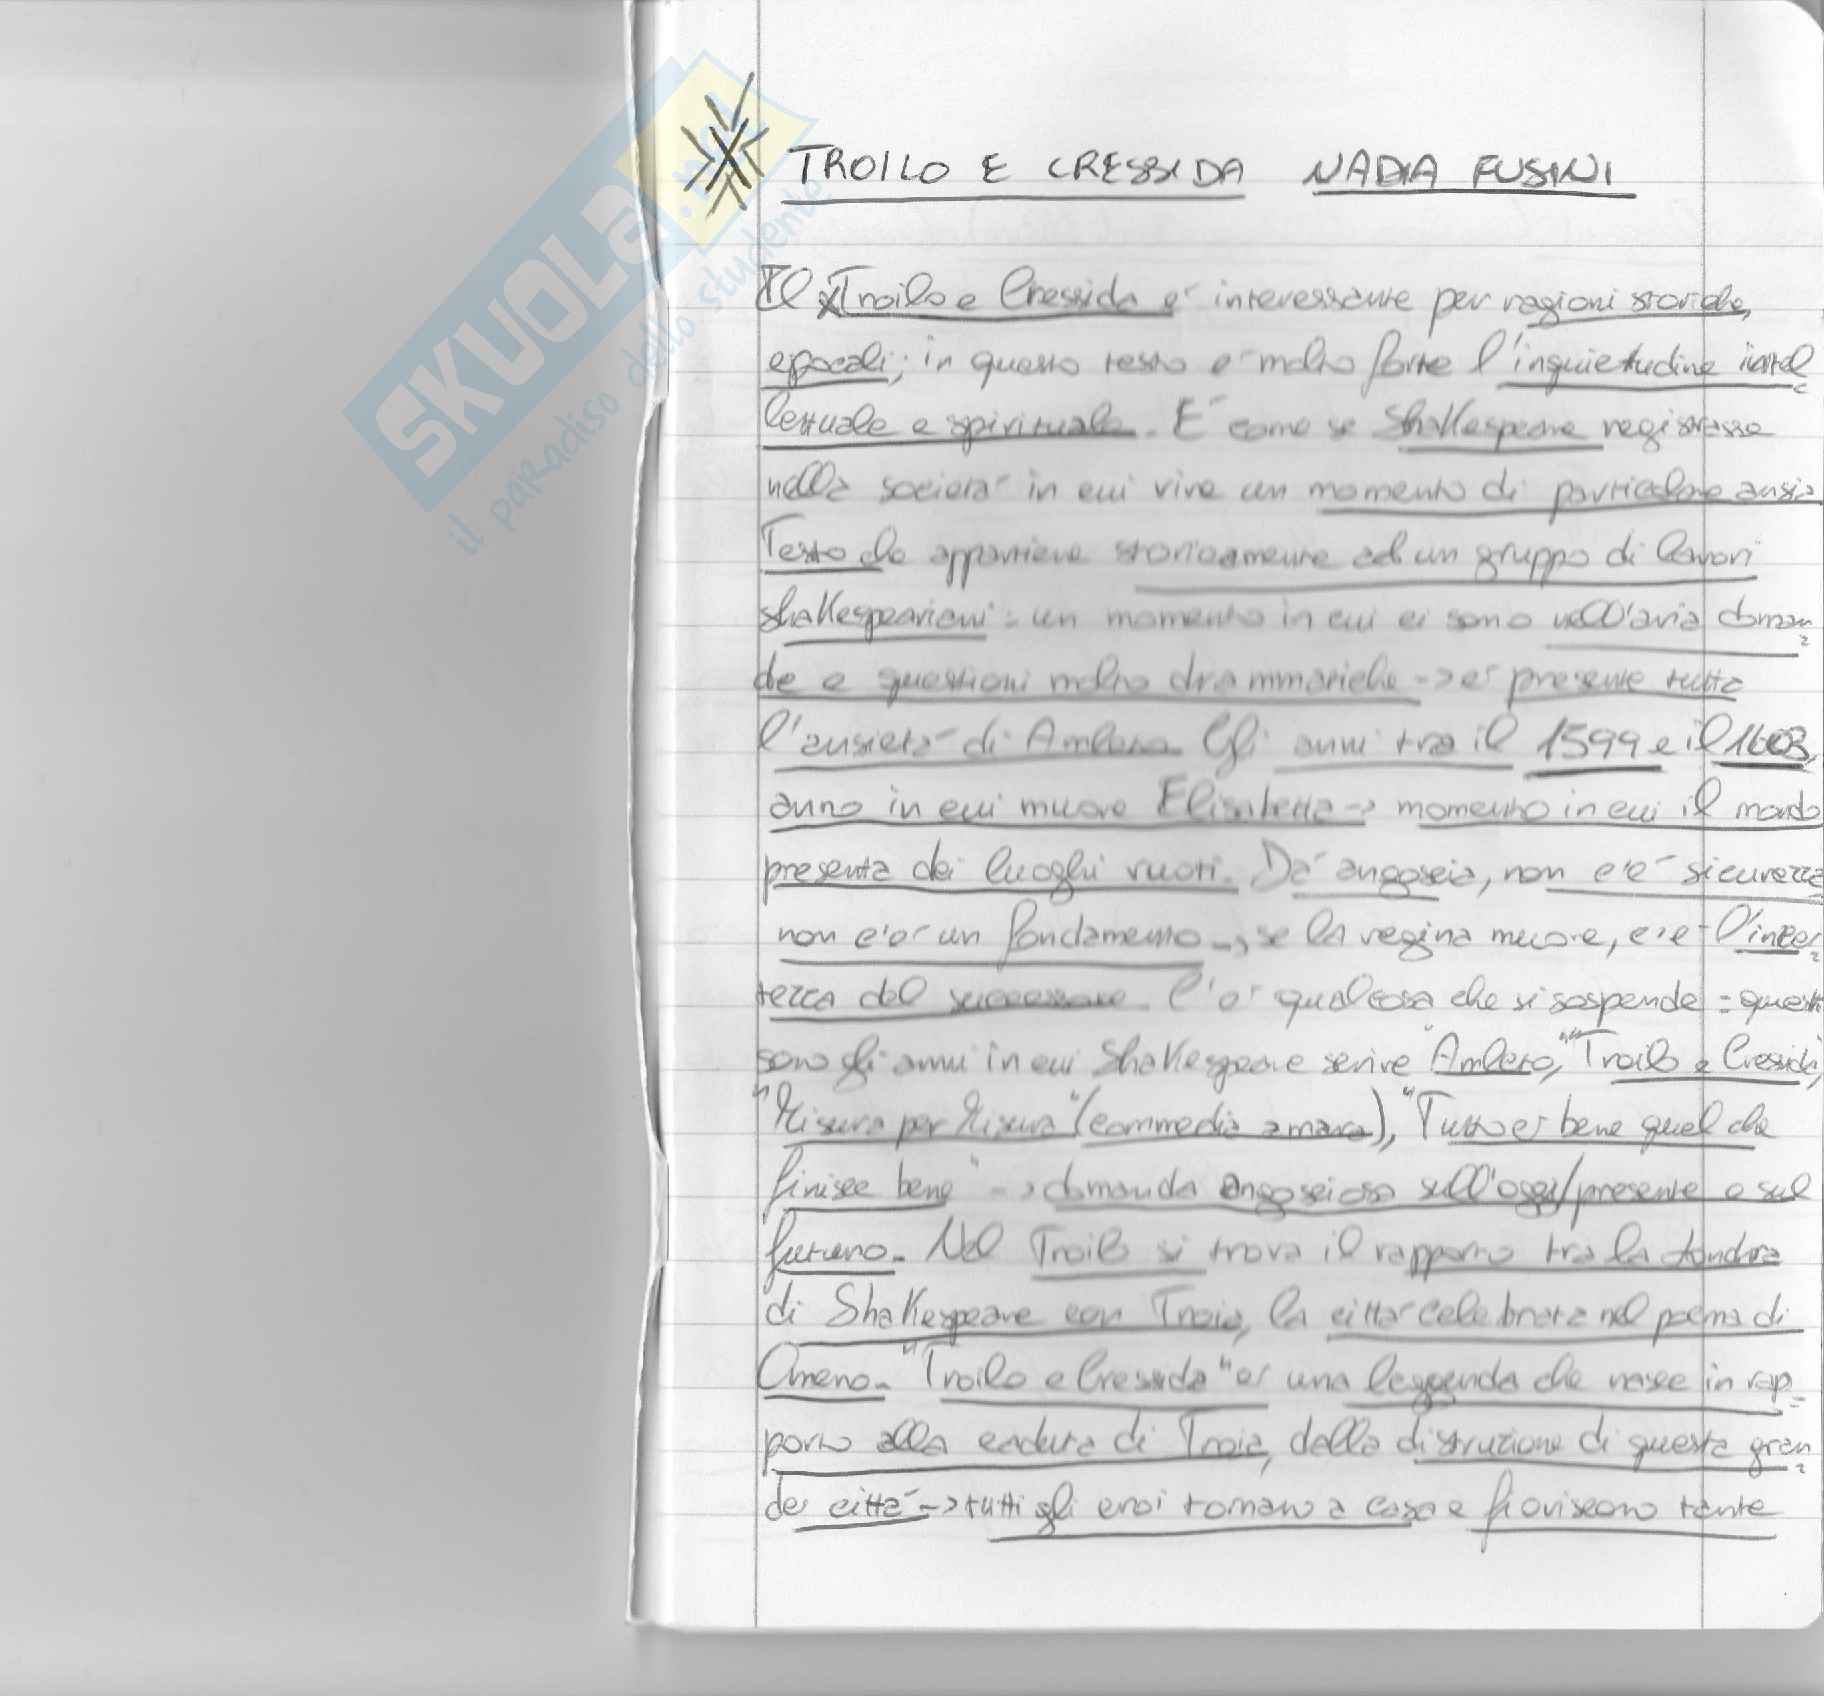 SKUOLA.net
il paradiso dello studente
TROILO E CRESSIDA NADIA FUSINI
Il Troilo e Cressida e' interessante per ragioni storiche,
epocali; in questo testo e' molto forte l'inquietudine intel
lettuale e spirituale. E' come se Shakespeare registrasse
nella societa' in cui vive un momento di particolare ansia
Testo che appartiene storicamente ad un gruppo di lavori
shakespeariani = un momento in cui ci sono nell'aria doman
de e questioni molto drammatiche -> e' presente tutta
l'ansieta' di Amleto. Gli anni tra il 1599 e il 1603,
anno in cui muore Elisabetta -> momento in cui il mondo
presenta dei luoghi vuoti. Da' angoscia, non c'e' sicurezza
non c'e' un fondamento -> se la regina muore, c'e' l'incer
tezza del successore. C'e' qualcosa che si sospende = questi
sono gli anni in cui Shakespeare scrive "Amleto", "Troilo e Cressida",
"Misura per Misura" (commedia amara), "Tutto e' bene quel che
finisce bene" -> domanda angosciosa sull'oggi/presente e sul
futuro. Nel Troilo si trova il rapporto tra la Londra
di Shakespeare con Troia, la citta' celebrata nel poema di
Omero. "Troilo e Cressida" e' una leggenda che nasce in rap-
porto alla caduta di Troia, della distruzione di questa gran
de citta' -> tutti gli eroi tornano a casa e fioriscono tante